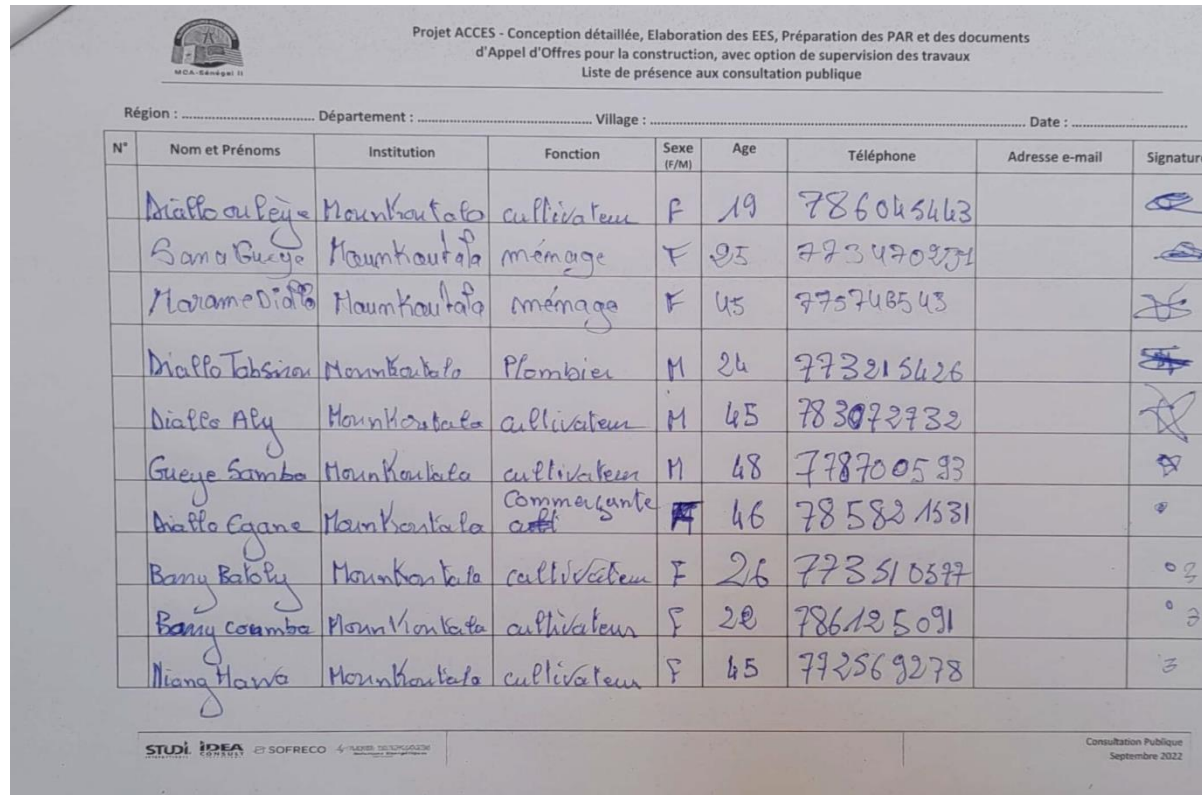 MCA-Sénégal II
Projet ACCES - Conception détaillée, Elaboration des EES, Préparation des PAR et des documents
d'Appel d'Offres pour la construction, avec option de supervision des travaux
Liste de présence aux consultation publique
Région : ................................. Département : ........................................... Village : ............................................................................................... Date : .............................
N° Nom et Prénoms Institution Fonction Sexe (F/M) Age Téléphone Adresse e-mail Signature
Diallo ouleye Mounkoutala cultivateur F 19 786045443
Sana Gueye Mounkoutala ménage F 25
Marame Diallo Mounkoutala ménage F 45 775748543
Diallo Mounkoutala Plombier M 24 773215426
Diallo Aly Mounkoutala cultivateur M 45 783072732
Gueye Samba Mounkoutala cultivateur M 48 778700593
Diallo Egane Mounkoutala Commerçante 46 785821531
Barry Mounkoutala cultivateur F 26 773510597
Barry coumba Mounkoutala cultivateur F 22 786125091
Niang Hawa Mounkoutala cultivateur F 45 772569278
STUDI IDEA CONSULT SOFRECO
Consultation Publique
Septembre 2022